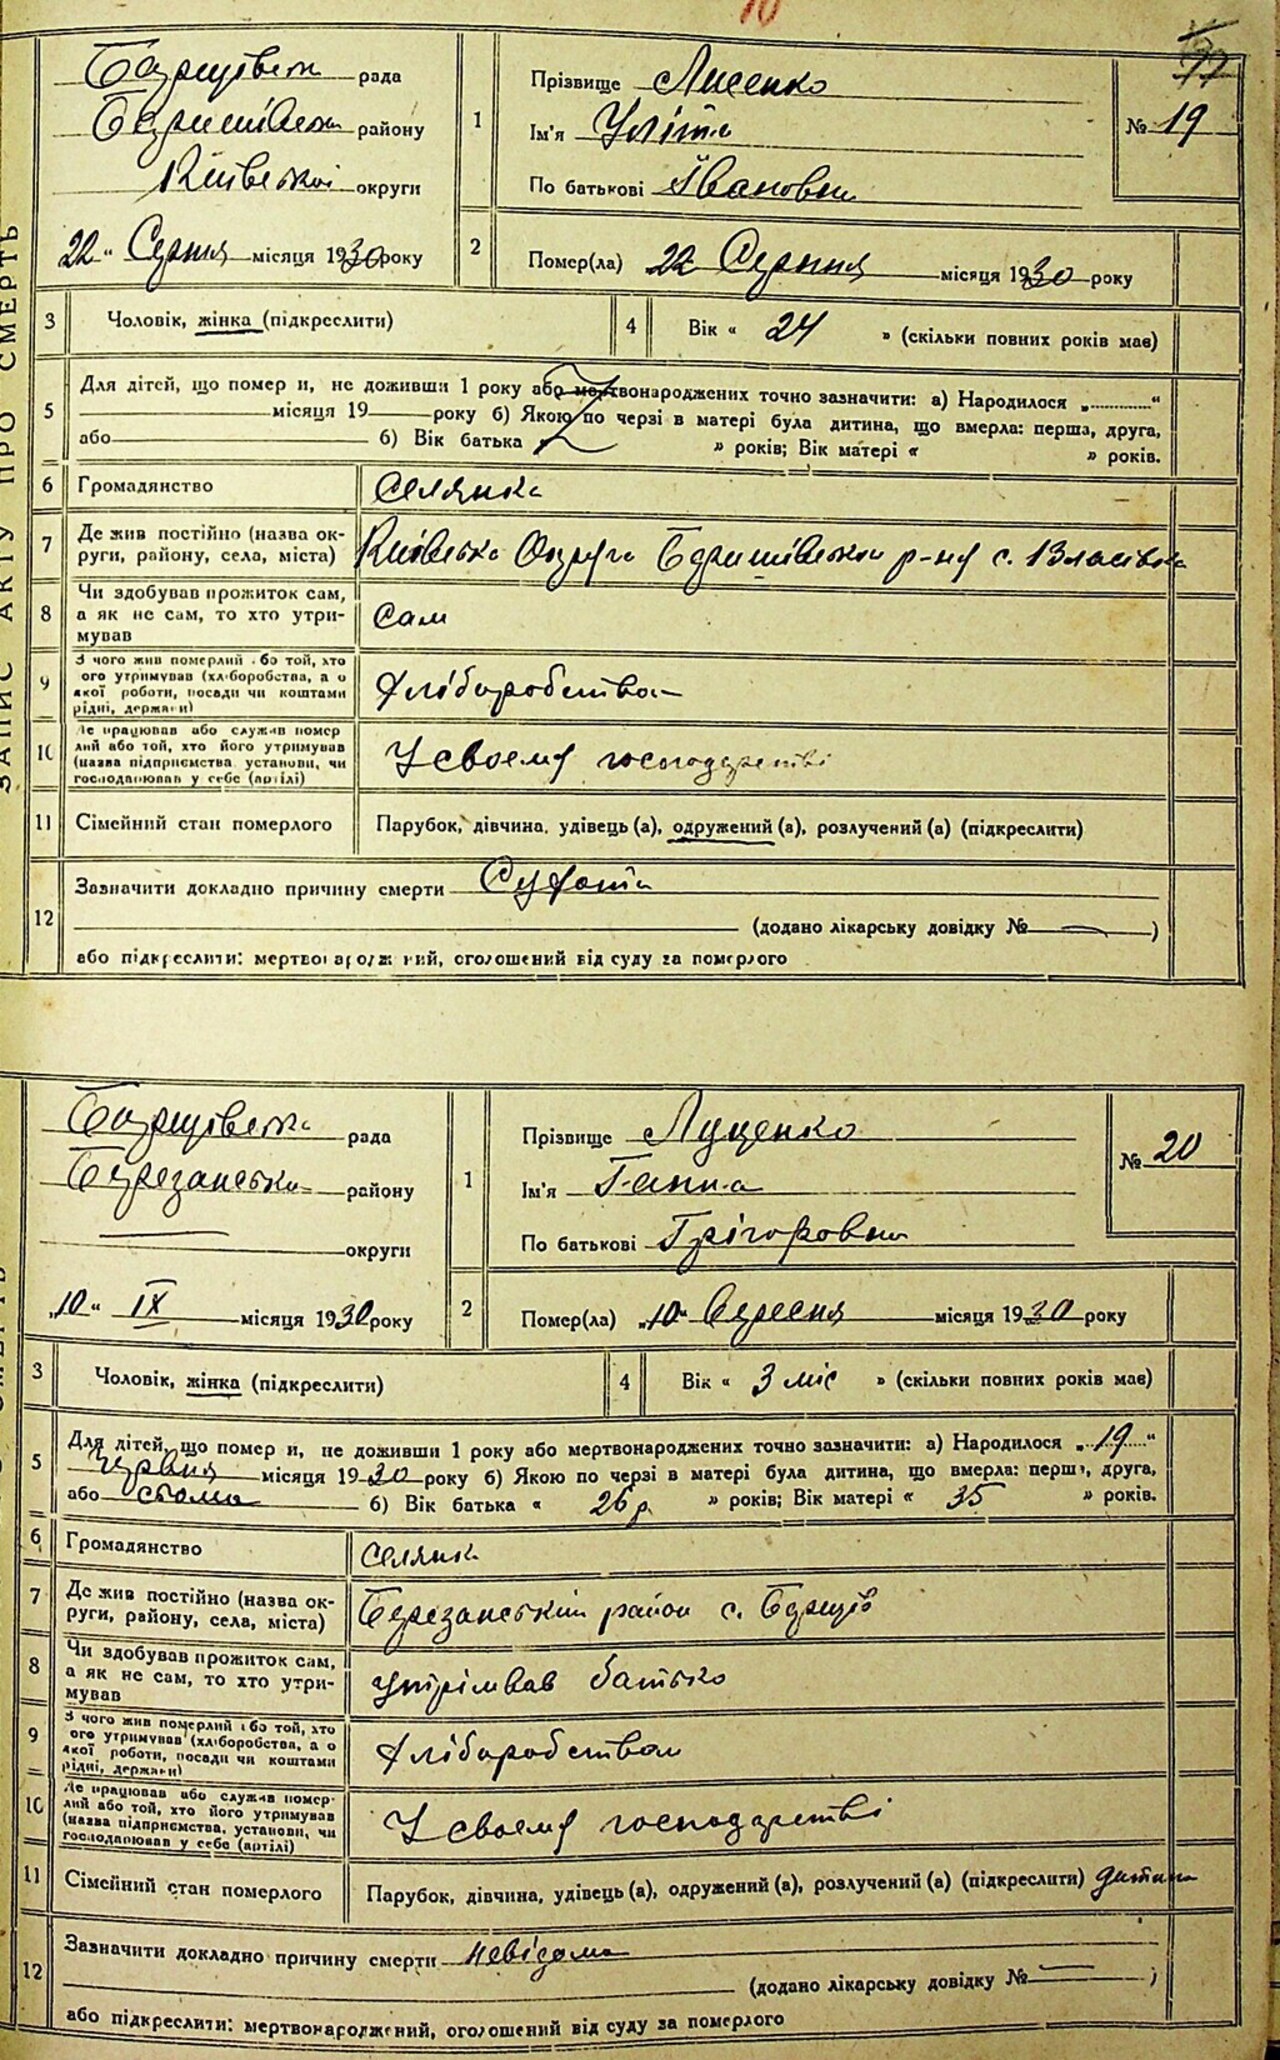 10
77
ЗАПИС АКТУ ПРО СМЕРТЬ
Борщівська рада
Баришівського району
Київської округи
22 " Серпня місяця 1930 року
1
Прізвище Лисенко
Ім'я Уліта
По батькові Івановна
№ 19
2
Помер(ла) 22 Серпня місяця 1930 року
3 Чоловік, жінка (підкреслити)
4 Вік « 24 » (скільки повних років має)
5
Для дітей, що помер и, не доживши 1 року або мертвонароджених точно зазначити: а) Народилося „............“
місяця 19 року б) Якою по черзі в матері була дитина, що вмерла: перша, друга,
або б) Вік батька „ » років; Вік матері « » років.
6 Громадянство Селянка
7 Де жив постійно (назва ок-
руги, району, села, міста) Київська Округа Баришівськой р-ну с. Власівка
8 Чи здобував прожиток сам,
а як не сам, то хто утри-
мував Сам
9 З чого жив померлий або той, хто
ого утримував (хліборобства, а о
якої роботи, посади чи коштами
рідні, держави) Хліборобства
10 Де працював або служив помер
лий або той, хто його утримував
(назва підприємства, установи, чи
господарював у себе (артілі) У своему господарстві
11 Сімейний стан померлого Парубок, дівчина, удівець (а), одружений (а), розлучений (а) (підкреслити)
12
Зазначити докладно причину смерти Сухота
(додано лікарську довідку № — )
або підкреслити: мертвонароджений, оголошений від суду за померлого
Борщівська рада
Березанська району
— округи
„10" IX місяця 1930 року
1
Прізвище Луценко
Ім'я Ганна
По батькові Грігоровна
№ 20
2
Помер(ла) „10" Вересня місяця 1930 року
3 Чоловік, жінка (підкреслити)
4 Вік « 3 міс » (скільки повних років має)
5
Для дітей, що помер и, не доживши 1 року або мертвонароджених точно зазначити: а) Народилося „19“
Червня місяця 1930 року б) Якою по черзі в матері була дитина, що вмерла: перша, друга,
або сьома б) Вік батька « 26 р » років; Вік матері « 35 » років.
6 Громадянство Селянк.
7 Де жив постійно (назва ок-
руги, району, села, міста) Березанський район с. Борщів
8 Чи здобував прожиток сам,
а як не сам, то хто утри-
мував утрімвав батько
9 З чого жив померлий або той, хто
ого утримував (хліборобства, а о
якої роботи, посади чи коштами
рідні, держави) Хліборобством
10 Де працював або служив помер-
лий або той, хто його утримував
(назва підприємства, установи, чи
господарював у себе (артілі) У своему господарстві
11 Сімейний стан померлого Парубок, дівчина, удівець (а), одружений (а), розлучений (а) (підкреслити) дитина
12
Зазначити докладно причину смерти невідома
(додано лікарську довідку № — )
або підкреслити: мертвонароджений, оголошений від суду за померлого